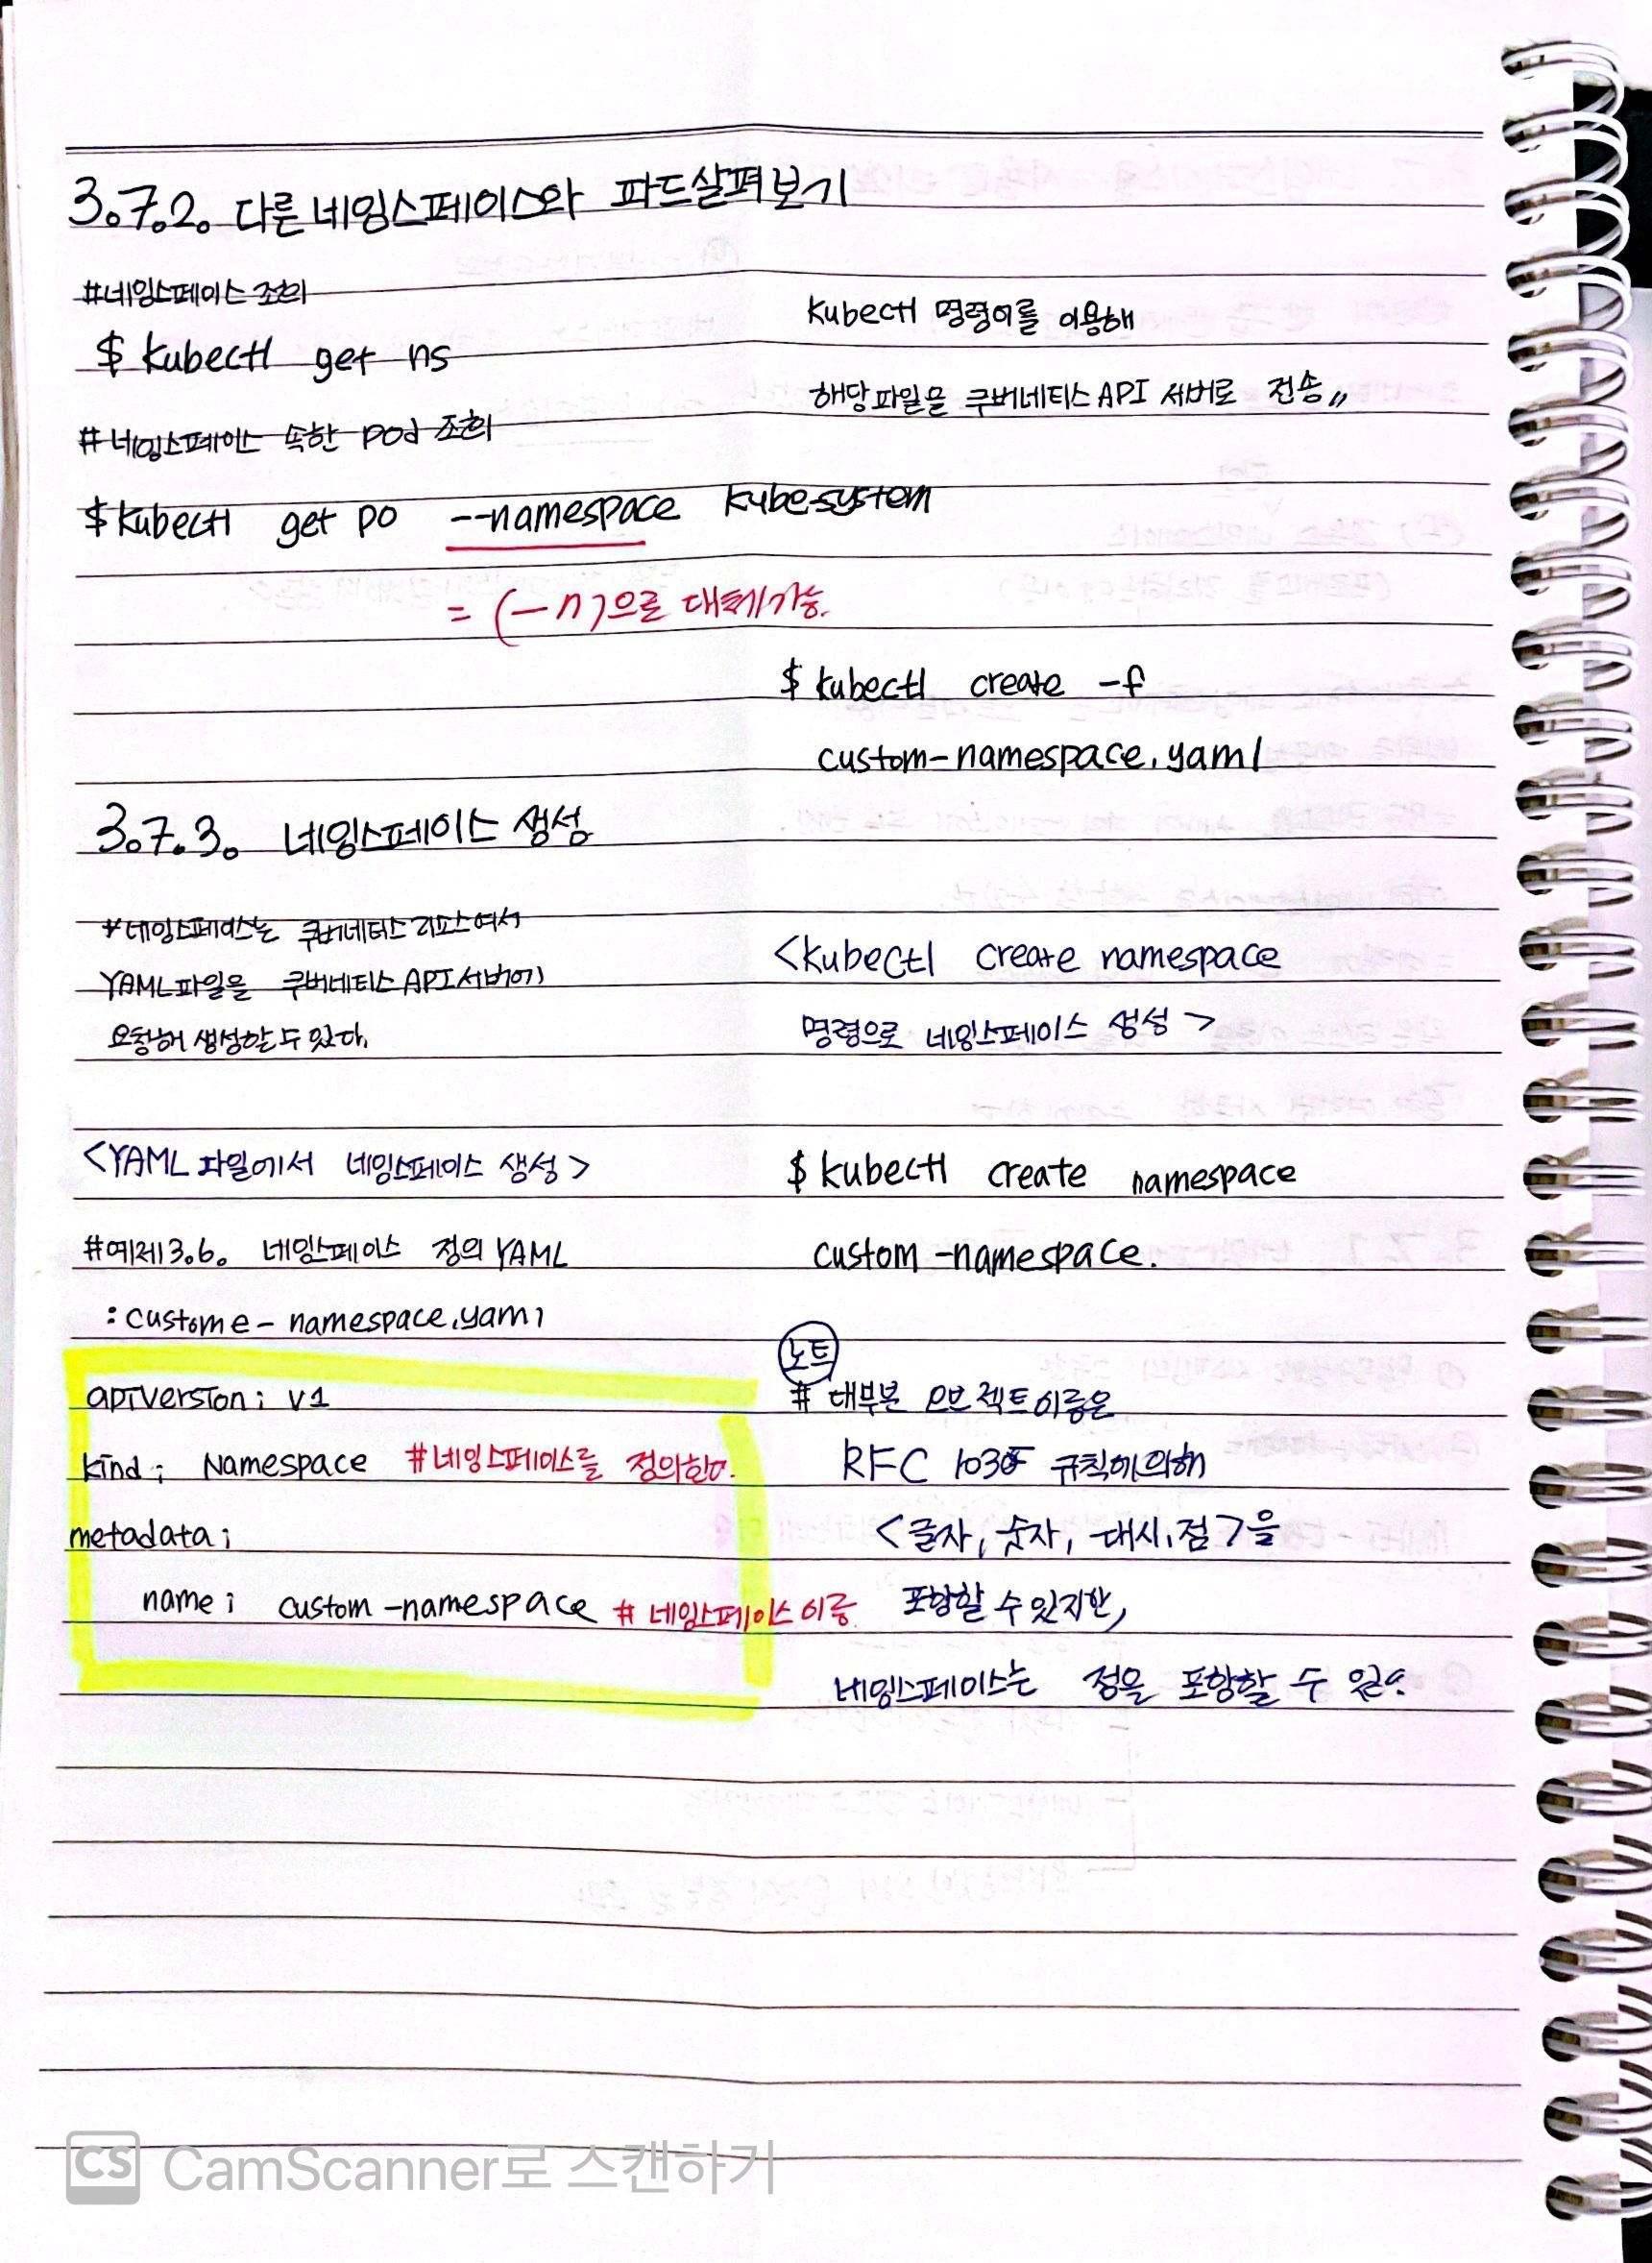 3.7.2. 다른 네임스페이스와 파드살펴보기
#네임스페이스 조회
$ kubectl get ns
#네임스페이스 속한 pod 조회
$ kubectl get po --namespace kube-system
= (-n)으로 대체가능.
3.7.3. 네임스페이스 생성
#네임스페이스는 쿠버네티스 리소스여서
YAML파일을 쿠버네티스 API서버에
요청해 생성할 수 있다.
<YAML 파일에서 네임스페이스 생성>
#예제3.6. 네임스페이스 정의 YAML
: custome-namespace.yaml
apiversion: v1
kind: Namespace #네임스페이스를 정의한다.
metadata:
name: custom-namespace # 네임스페이스 이름
kubectl 명령어를 이용해
해당파일을 쿠버네티스 API 서버로 전송〃
$ kubectl create -f
custom-namespace.yaml
<kubectl create namespace
명령으로 네임스페이스 생성>
$ kubectl create namespace
custom-namespace.
노트
# 대부분 오브젝트이름은
RFC 1035 규칙에의해
<글자, 숫자, 대시, 점>을
포함할 수 있지만,
네임스페이스는 점을 포함할 수
CS CamScanner로 스캔하기